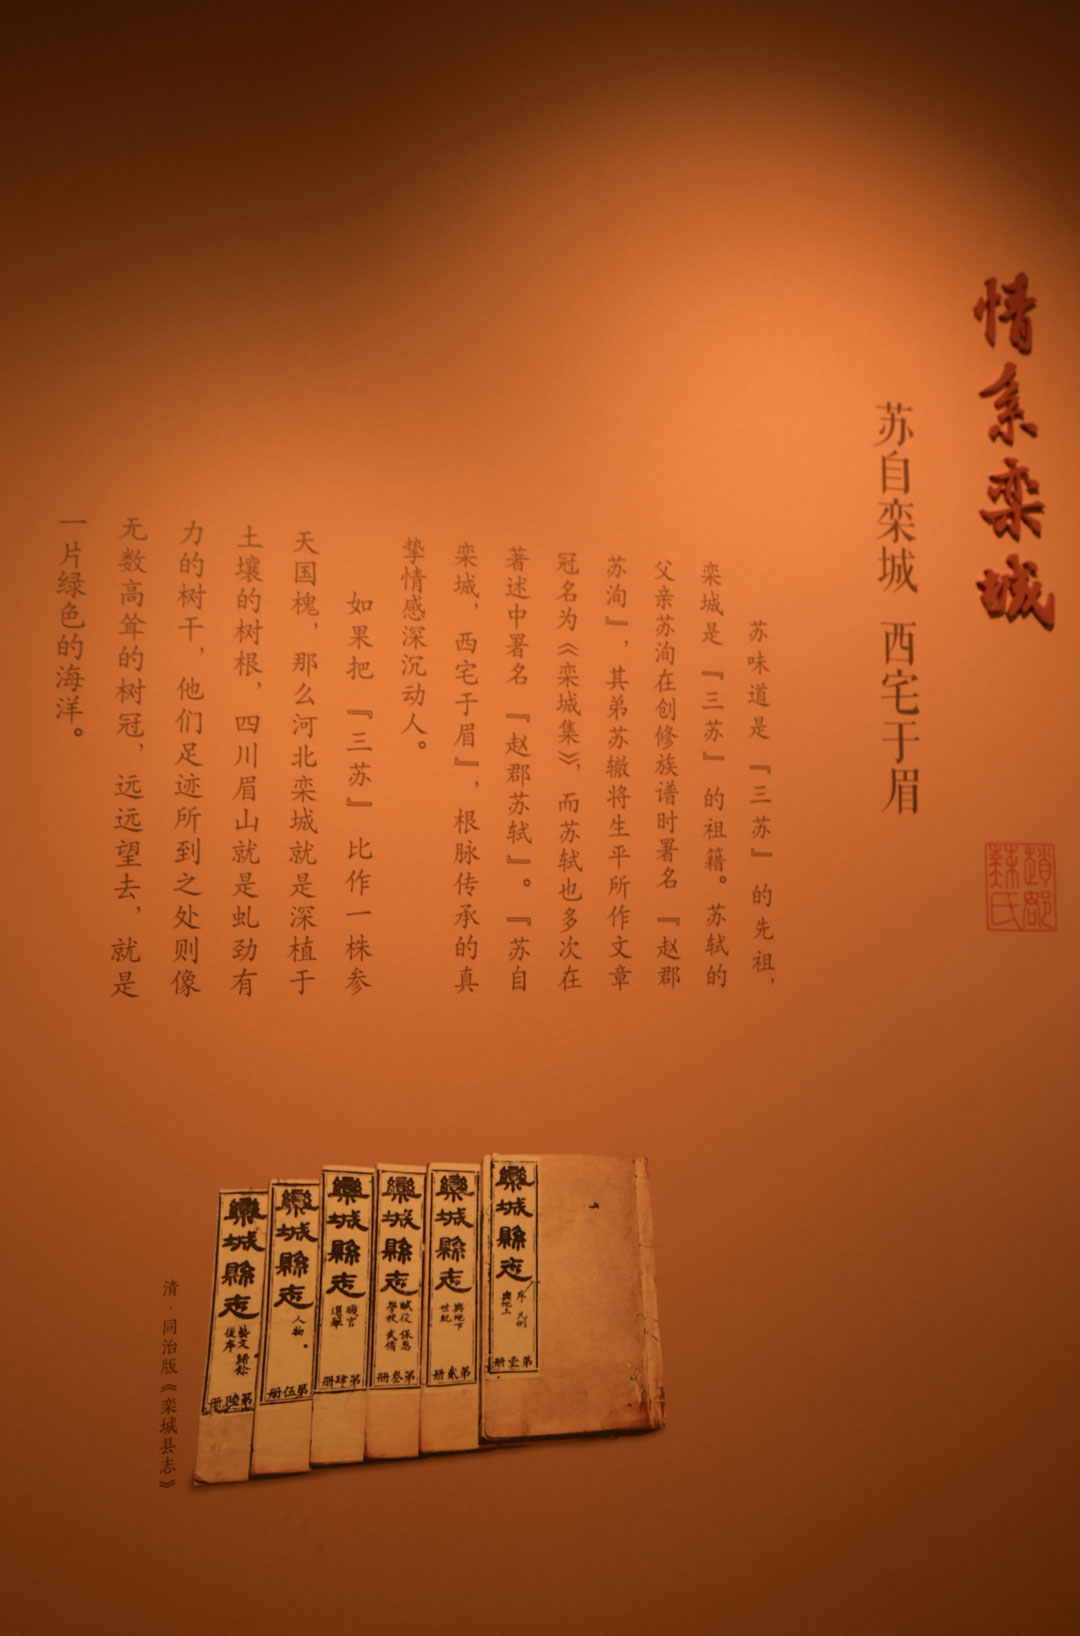 情系栾城
苏自栾城 西宅于眉
趙郡
蘇氏
苏味道是『三苏』的先祖，
栾城是『三苏』的祖籍。苏轼的
父亲苏洵在创修族谱时署名『赵郡
苏洵』，其弟苏辙将生平所作文章
冠名为《栾城集》，而苏轼也多次在
著述中署名『赵郡苏轼』。『苏自
栾城，西宅于眉』，根脉传承的真
挚情感深沉动人。
如果把『三苏』比作一株参
天国槐，那么河北栾城就是深植于
土壤的树根，四川眉山就是虬劲有
力的树干，他们足迹所到之处则像
无数高耸的树冠，远远望去，就是
一片绿色的海洋。
欒城縣志
序 凡例
輿地上
第壹册
欒城縣志
輿地下
世紀
第貳册
欒城縣志
賦役 保息
學校 武備
第叁册
欒城縣志
職官
選舉
第肆册
欒城縣志
人物
第伍册
欒城縣志
藝文 歸餘
後序
第陸册
清·同治版《栾城县志》